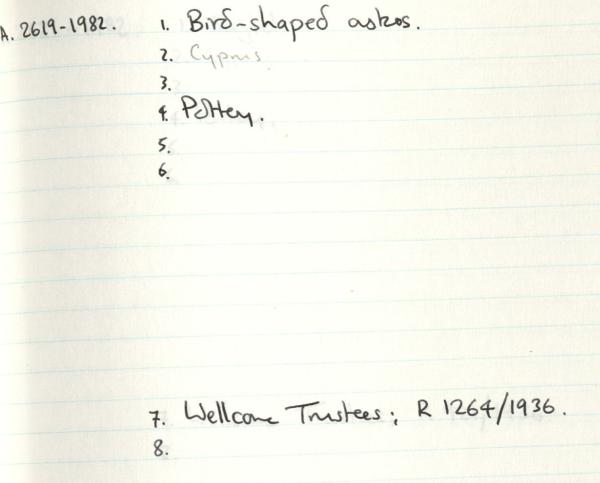 A. 2619-1982. 1. Bird-shaped askos.
2. Cyprus
3.
4. Pottery.
5.
6.
7. Wellcome Trustees; R 1264/1936.
8.